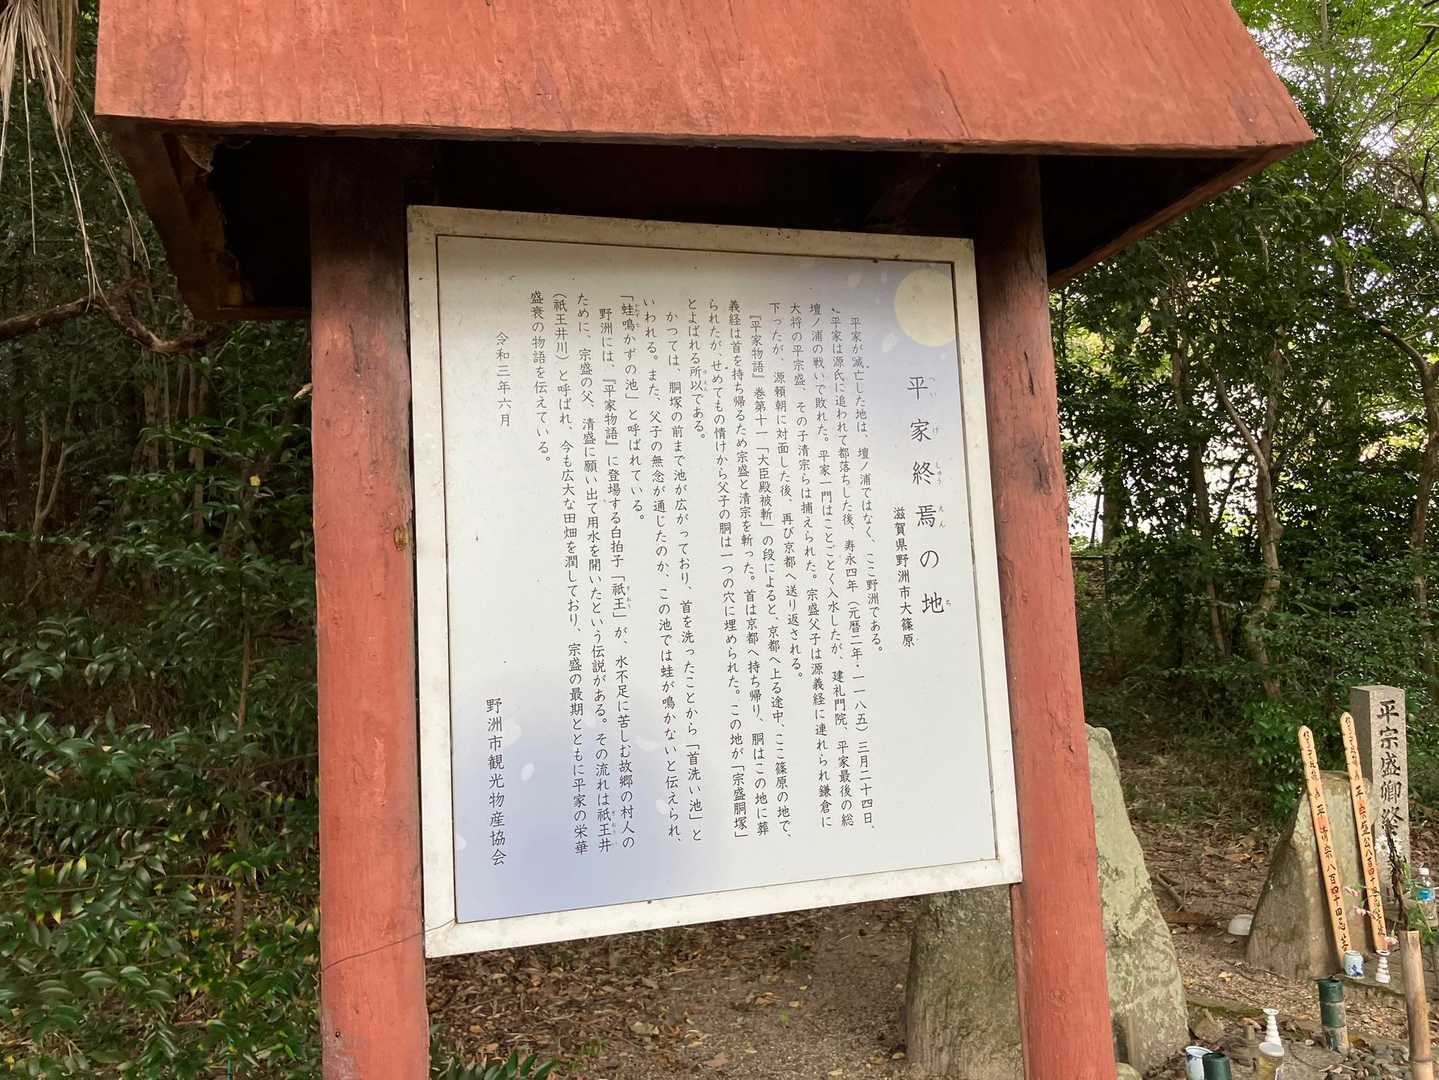 平家終焉の地
へいけしゅうえんち
滋賀県野洲市大篠原
平家が滅亡した地は、壇ノ浦ではなく、ここ野洲である。
平家は源氏に追われて都落ちした後、寿永四年（元暦二年・一一八五）三月二十四日、
壇ノ浦の戦いで敗れた。平家一門はことごとく入水したが、建礼門院、平家最後の総
大将の平宗盛、その子清宗らは捕えられた。宗盛父子は源義経に連れられ鎌倉に
下ったが、源頼朝に対面した後、再び京都へ送り返される。
『平家物語』巻第十一「大臣殿被斬」の段によると、京都へ上る途中、ここ篠原の地で、
義経は首を持ち帰るため宗盛と清宗を斬った。首は京都へ持ち帰り、胴はこの地に葬
られたが、せめてもの情けから父子の胴は一つの穴に埋められた。この地が「宗盛胴塚」
とよばれる所以である。
ゆえん
かつては、胴塚の前まで池が広がっており、首を洗ったことから「首洗い池」と
いわれる。また、父子の無念が通じたのか、この池では蛙が鳴かないと伝えられ、
「蛙鳴かずの池」と呼ばれている。
かわずな
野洲には、『平家物語』に登場する白拍子「祇王」が、水不足に苦しむ故郷の村人の
ぎおう
ために、宗盛の父、清盛に願い出て用水を開いたという伝説がある。その流れは祇王井
（祇王井川）と呼ばれ、今も広大な田畑を潤しており、宗盛の最期とともに平家の栄華
盛衰の物語を伝えている。
令和三年六月
野洲市観光物産協会
平宗盛卿終
平清宗八百四十